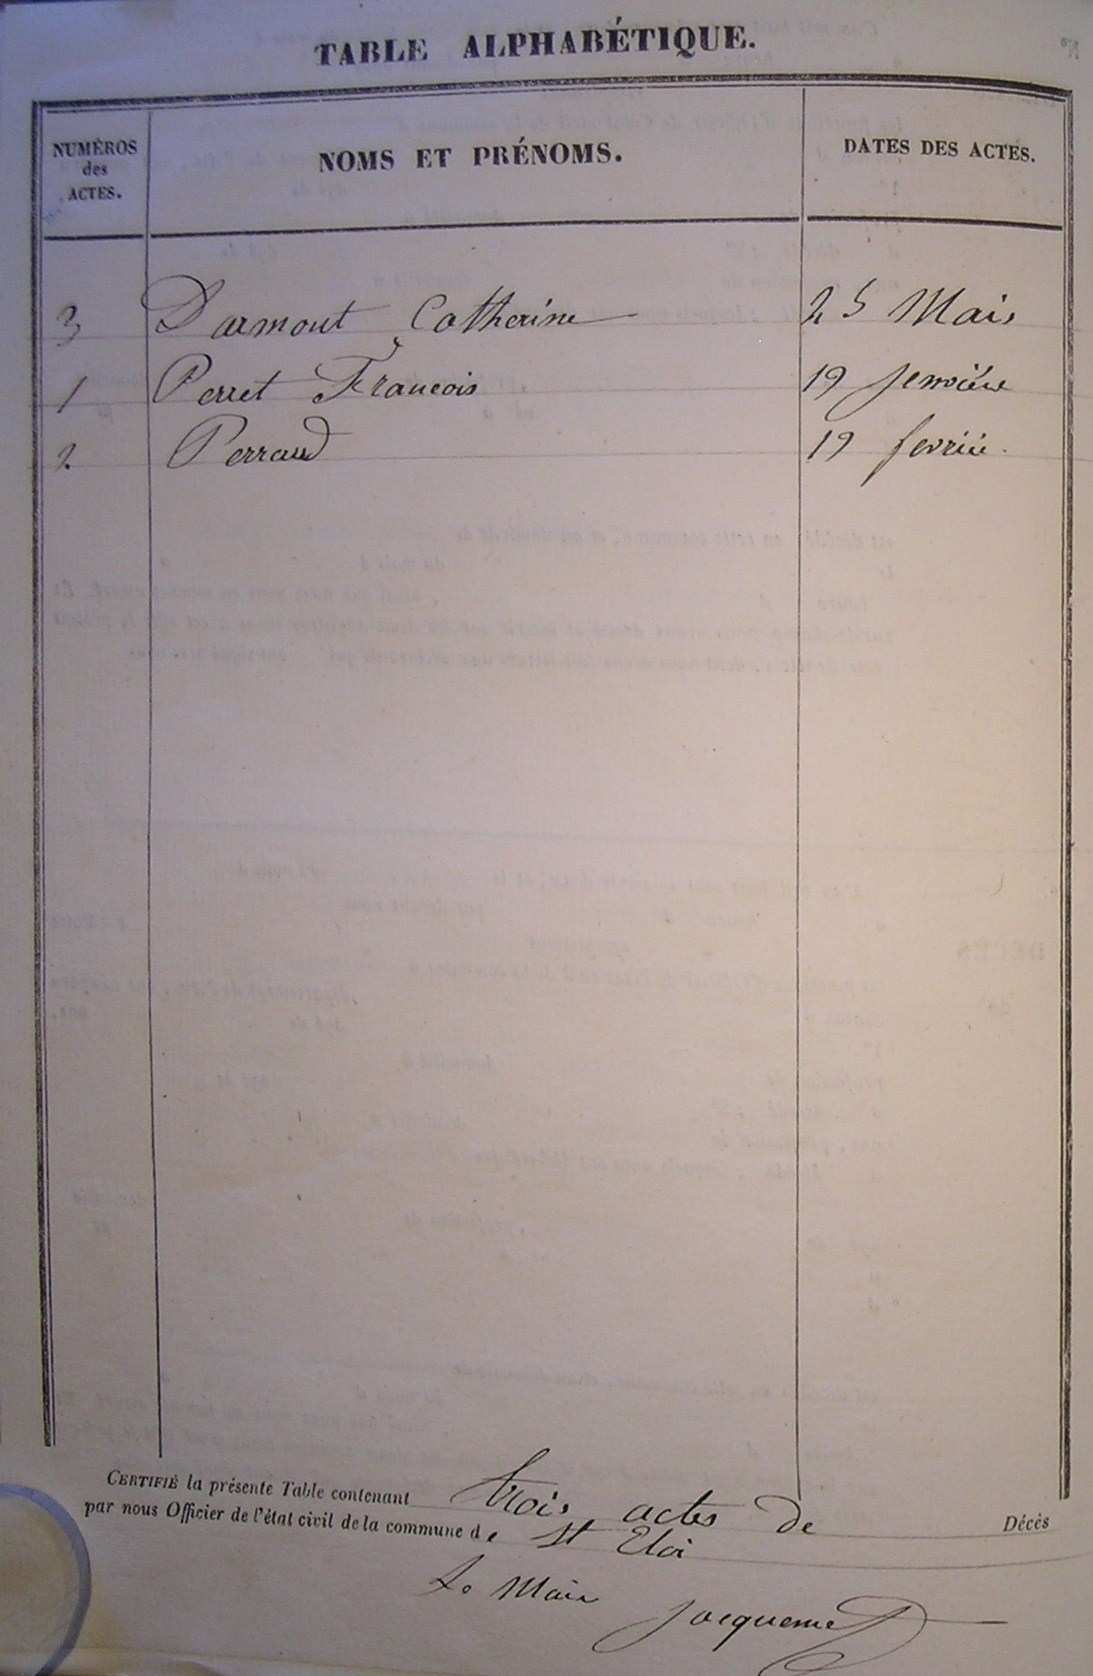 TABLE ALPHABÉTIQUE.
NUMÉROS
des
ACTES.
NOMS ET PRÉNOMS.
DATES DES ACTES.
3 Darmont Catherine 25 Mais
1 Perret Francois 19 Jenviére
2. Perraud 19 fevrié.
CERTIFIÉ la présente Table contenant trois actes de Décès
par nous Officier de l'état civil de la commune de St Eloi
Le Maire
Jacquemet